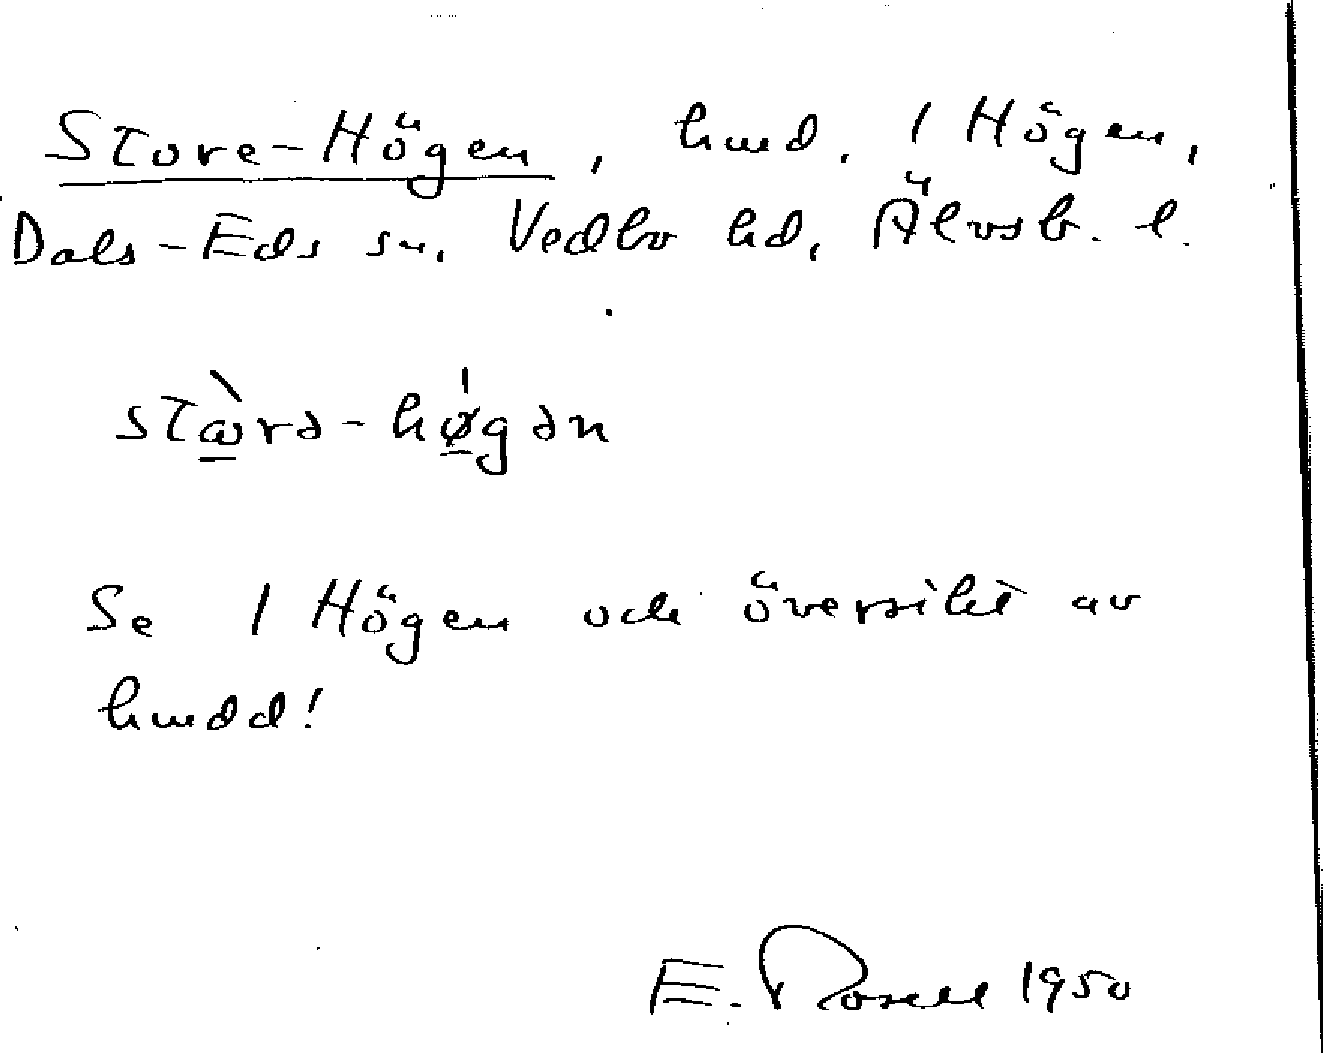 Store-Högen, hmd. 1 Högen,
Dals-Eds sn. Vedbo hd, Älvsb. l.
stὼ̲rə-hǿ̲gən
Se 1 Högen och översikt av
hmdd!
E. Rosell 1950